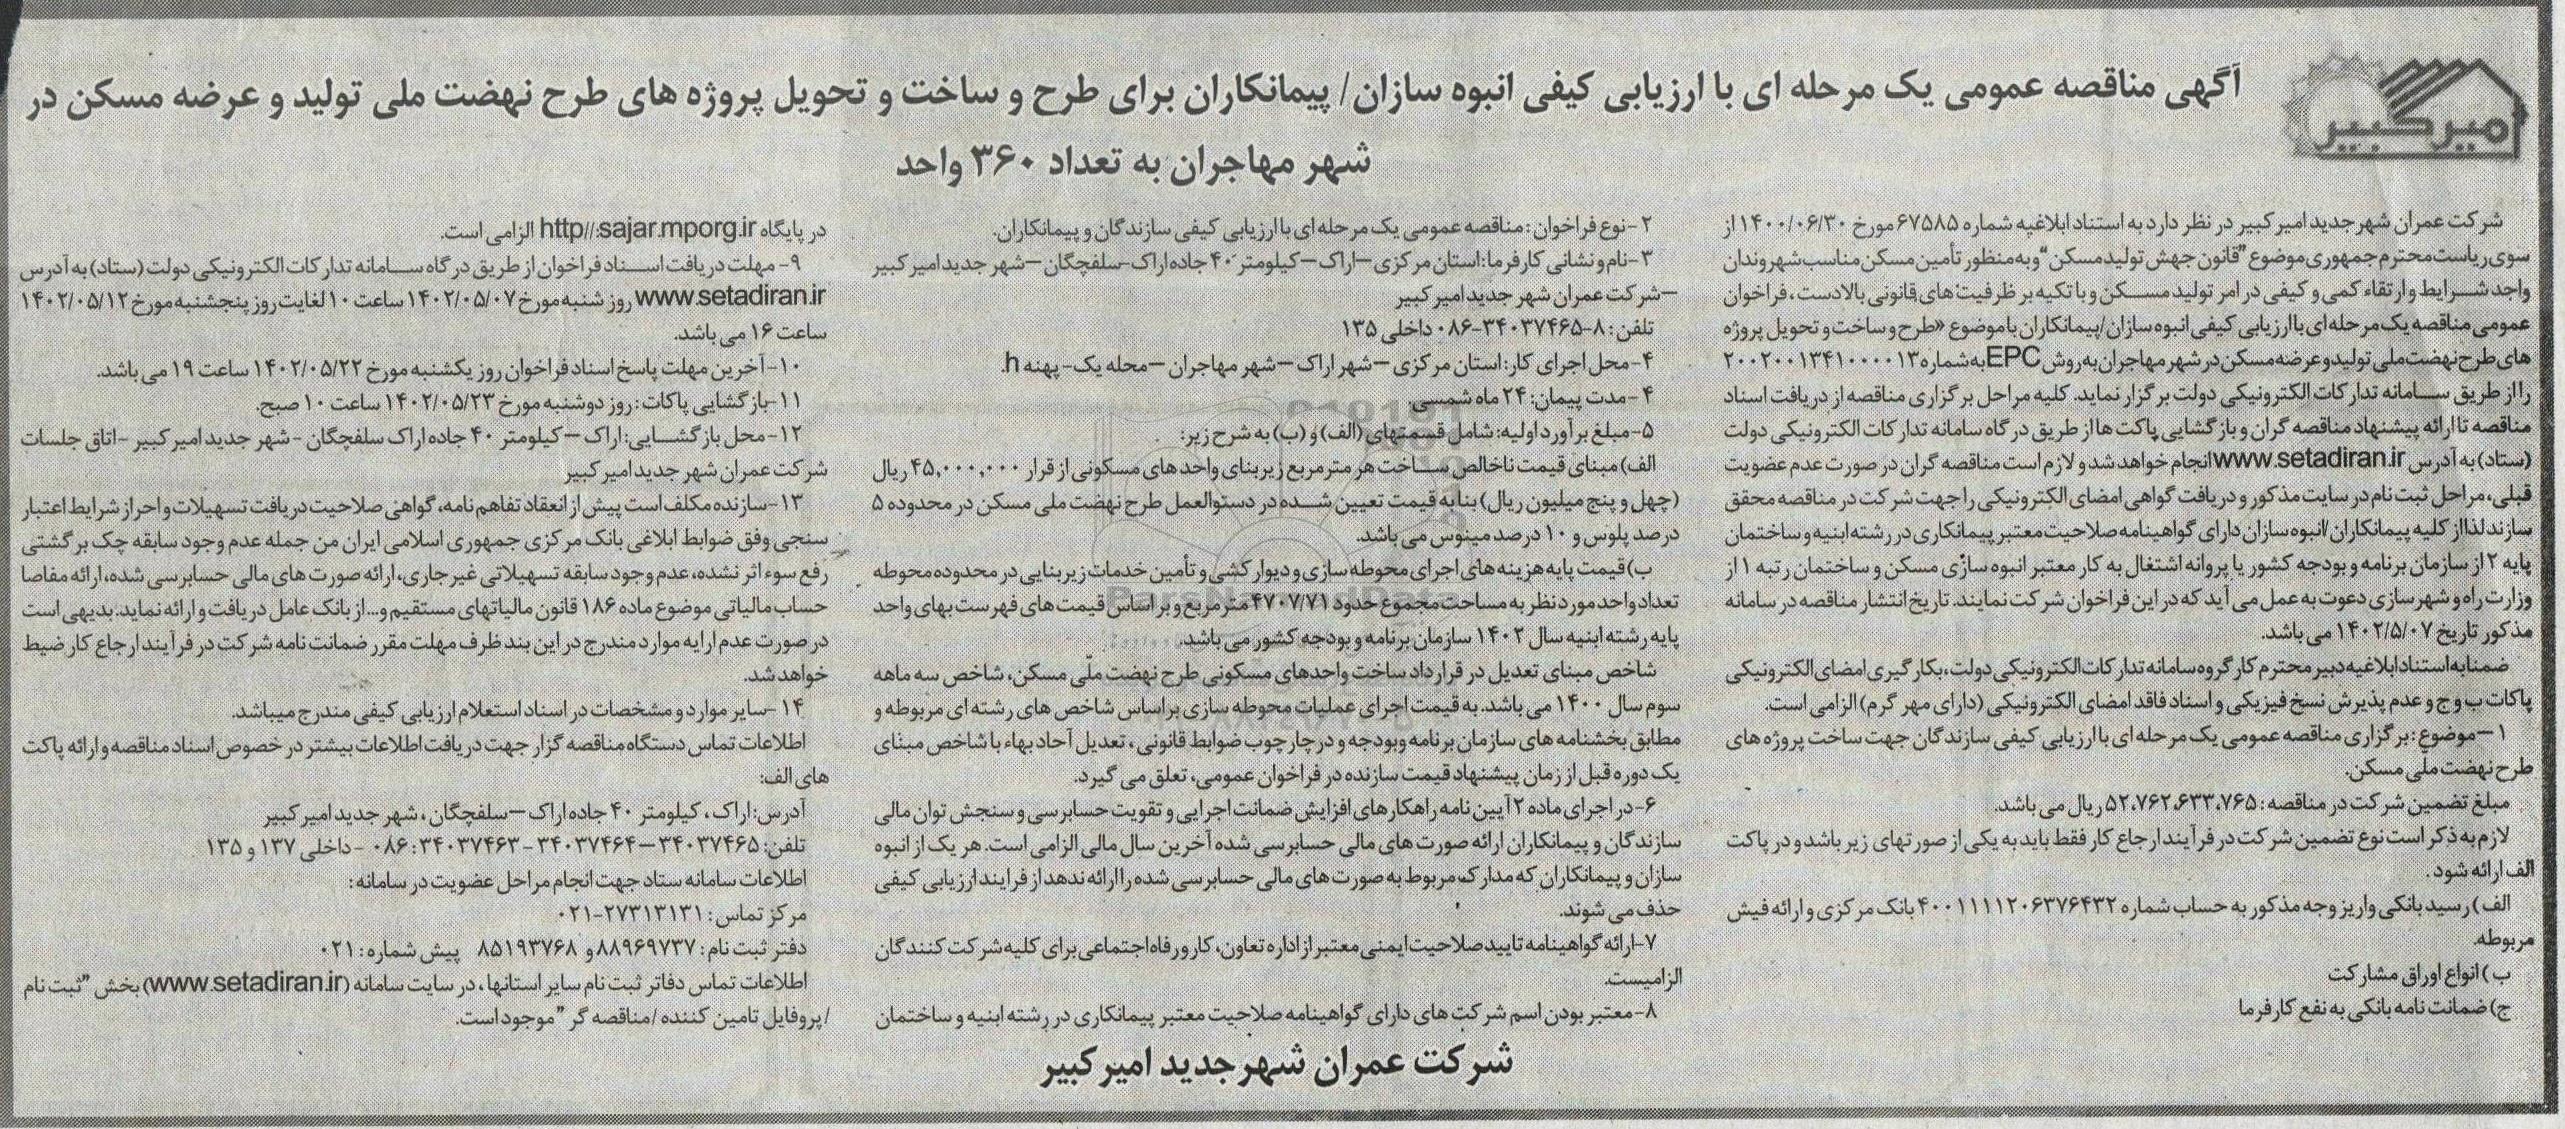 امیرکبیر
آگهی مناقصه عمومی یک مرحله ای با ارزیابی کیفی انبوه سازان/ پیمانکاران برای طرح و ساخت و تحویل پروژه های طرح نهضت ملی تولید و عرضه مسکن در
شهر مهاجران به تعداد ۳۶۰ واحد
شرکت عمران شهر جدید امیر کبیر در نظر دارد به استناد ابلاغیه شماره ۶۷۵۸۵ مورخ ۱۴۰۰/۰۶/۳۰ از
سوی ریاست محترم جمهوری موضوع "قانون جهش تولید مسکن" و به منظور تأمین مسکن مناسب شهروندان
واجد شرایط و ارتقاء کمی و کیفی در امر تولید مسکن و با تکیه بر ظرفیت های قانونی بالادست، فراخوان
عمومی مناقصه یک مرحله ای با ارزیابی کیفی انبوه سازان/پیمانکاران با موضوع «طرح و ساخت و تحویل پروژه
های طرح نهضت ملی تولید و عرضه مسکن در شهر مهاجران به روش EPC به شماره ۲۰۰۲۰۰۱۳۴۱۰۰۰۰۱۳
را از طریق سامانه تدارکات الکترونیکی دولت برگزار نماید. کلیه مراحل برگزاری مناقصه از دریافت اسناد
مناقصه تا ارائه پیشنهاد مناقصه گران و بازگشایی پاکت ها از طریق درگاه سامانه تدارکات الکترونیکی دولت
(ستاد) به آدرس www.setadiran.ir انجام خواهد شد و لازم است مناقصه گران در صورت عدم عضویت
قبلی، مراحل ثبت نام در سایت مذکور و دریافت گواهی امضای الکترونیکی را جهت شرکت در مناقصه محقق
سازند لذا از کلیه پیمانکاران/انبوه سازان دارای گواهینامه صلاحیت معتبر پیمانکاری در رشته ابنیه و ساختمان
پایه ۲ از سازمان برنامه و بودجه کشور یا پروانه اشتغال به کار معتبر انبوه سازی مسکن و ساختمان رتبه ۱ از
وزارت راه و شهرسازی دعوت به عمل می آید که در این فراخوان شرکت نمایند. تاریخ انتشار مناقصه در سامانه
مذکور تاریخ ۱۴۰۲/۵/۰۷ می باشد.
ضمنا به استناد ابلاغیه دبیر محترم کارگروه سامانه تدارکات الکترونیکی دولت، بکارگیری امضای الکترونیکی
پاکات ب و ج و عدم پذیرش نسخ فیزیکی و اسناد فاقد امضای الکترونیکی (دارای مهر گرم) الزامی است.
۱–موضوع: برگزاری مناقصه عمومی یک مرحله ای با ارزیابی کیفی سازندگان جهت ساخت پروژه های
طرح نهضت ملی مسکن.
مبلغ تضمین شرکت در مناقصه: ۵۲،۷۶۲،۶۳۳،۷۶۵ ریال می باشد.
لازم به ذکر است نوع تضمین شرکت در فرآیند ارجاع کار فقط باید به یکی از صورتهای زیر باشد و در پاکت
الف ارائه شود.
الف) رسید بانکی واریز وجه مذکور به حساب شماره ۴۰۰۱۱۱۱۱۲۰۶۳۷۶۴۳۲ بانک مرکزی و ارائه فیش
مربوطه.
ب) انواع اوراق مشارکت
ج) ضمانت نامه بانکی به نفع کارفرما
۲-نوع فراخوان: مناقصه عمومی یک مرحله ای با ارزیابی کیفی سازندگان و پیمانکاران.
۳-نام و نشانی کارفرما: استان مرکزی–اراک–کیلومتر ۴۰ جاده اراک-سلفچگان–شهر جدید امیر کبیر
–شرکت عمران شهر جدید امیر کبیر
تلفن: ۸-۳۴۰۳۷۴۶۵-۰۸۶ داخلی ۱۳۵
۴-محل اجرای کار: استان مرکزی–شهر اراک–شهر مهاجران–محله یک-پهنه h.
۴-مدت پیمان: ۲۴ ماه شمسی.
۵-مبلغ برآورد اولیه: شامل قسمتهای (الف) و (ب) به شرح زیر:
الف) مبنای قیمت ناخالص ساخت هر مترمربع زیربنای واحدهای مسکونی از قرار ۴۵,۰۰۰,۰۰۰ ریال
(چهل و پنج میلیون ریال) بنا به قیمت تعیین شده در دستوالعمل طرح نهضت ملی مسکن در محدوده ۵
درصد پلوس و ۱۰ درصد مینوس می باشد.
ب) قیمت پایه هزینه های اجرای محوطه سازی و دیوارکشی و تأمین خدمات زیربنایی در محدوده محوطه
تعداد واحد مورد نظر به مساحت مجموع حدود ۴۷۰۷/۷۱ مترمربع و بر اساس قیمت های فهرست بهای واحد
پایه رشته ابنیه سال ۱۴۰۲ سازمان برنامه و بودجه کشور می باشد.
شاخص مبنای تعدیل در قرارداد ساخت واحدهای مسکونی طرح نهضت ملّی مسکن، شاخص سه ماهه
سوم سال ۱۴۰۰ می باشد. به قیمت اجرای عملیات محوطه سازی براساس شاخص های رشته ای مربوطه و
مطابق بخشنامه های سازمان برنامه وبودجه و در چارچوب ضوابط قانونی، تعدیل آحاد بهاء با شاخص مبنای
یک دوره قبل از زمان پیشنهاد قیمت سازنده در فراخوان عمومی، تعلق می گیرد.
۶-در اجرای ماده ۲ آیین نامه راهکارهای افزایش ضمانت اجرایی و تقویت حسابرسی و سنجش توان مالی
سازندگان و پیمانکاران ارائه صورت های مالی حسابرسی شده آخرین سال مالی الزامی است. هر یک از انبوه
سازان و پیمانکاران که مدارک مربوط به صورت های مالی حسابرسی شده را ارائه ندهد از فرایند ارزیابی کیفی
حذف می شوند.
۷-ارائه گواهینامه تایید صلاحیت ایمنی معتبر از اداره تعاون، کار و رفاه اجتماعی برای کلیه شرکت کنندگان
الزامیست.
۸-معتبر بودن اسم شرکت های دارای گواهینامه صلاحیت معتبر پیمانکاری در رشته ابنیه و ساختمان
در پایگاه http//:sajar.mporg.ir الزامی است.
۹- مهلت دریافت اسناد فراخوان از طریق درگاه سامانه تدارکات الکترونیکی دولت (ستاد) به آدرس
www.setadiran.ir روز شنبه مورخ ۱۴۰۲/۰۵/۰۷ ساعت ۱۰ لغایت روز پنجشنبه مورخ ۱۴۰۲/۰۵/۱۲
ساعت ۱۶ می باشد.
۱۰-آخرین مهلت پاسخ اسناد فراخوان روز یکشنبه مورخ ۱۴۰۲/۰۵/۲۲ ساعت ۱۹ می باشد.
۱۱-بازگشایی پاکات: روز دوشنبه مورخ ۱۴۰۲/۰۵/۲۳ ساعت ۱۰ صبح.
۱۲-محل بازگشایی: اراک–کیلومتر ۴۰ جاده اراک سلفچگان-شهر جدید امیر کبیر-اتاق جلسات
شرکت عمران شهر جدید امیر کبیر
۱۳-سازنده مکلف است پیش از انعقاد تفاهم نامه، گواهی صلاحیت دریافت تسهیلات و احراز شرایط اعتبار
سنجی وفق ضوابط ابلاغی بانک مرکزی جمهوری اسلامی ایران من جمله عدم وجود سابقه چک برگشتی
رفع سوء اثر نشده، عدم وجود سابقه تسهیلاتی غیر جاری، ارائه صورت های مالی حسابرسی شده، ارائه مفاصا
حساب مالیاتی موضوع ماده ۱۸۶ قانون مالیاتهای مستقیم و...از بانک عامل دریافت و ارائه نماید. بدیهی است
در صورت عدم ارایه موارد مندرج در این بند ظرف مهلت مقرر ضمانت نامه شرکت در فرآیند ارجاع کار ضبط
خواهد شد.
۱۴-سایر موارد و مشخصات در اسناد استعلام ارزیابی کیفی مندرج میباشد.
اطلاعات تماس دستگاه مناقصه گزار جهت دریافت اطلاعات بیشتر در خصوص اسناد مناقصه و ارائه پاکت
های الف:
آدرس: اراک، کیلومتر ۴۰ جاده اراک–سلفچگان، شهر جدید امیر کبیر
تلفن: ۳۴۰۳۷۴۶۵–۳۴۰۳۷۴۶۴-۳۴۰۳۷۴۶۳: ۰۸۶ -داخلی ۱۳۷ و ۱۳۵
اطلاعات سامانه ستاد جهت انجام مراحل عضویت در سامانه:
مرکز تماس: ۲۷۳۱۳۱۳۱-۰۲۱
دفتر ثبت نام: ۸۸۹۶۹۷۳۷ و ۸۵۱۹۳۷۶۸ پیش شماره: ۰۲۱
اطلاعات تماس دفاتر ثبت نام سایر استانها، در سایت سامانه (www.setadiran.ir) بخش "ثبت نام
/پروفایل تامین کننده/مناقصه گر" موجود است.
شرکت عمران شهر جدید امیر کبیر
ParsNamadData